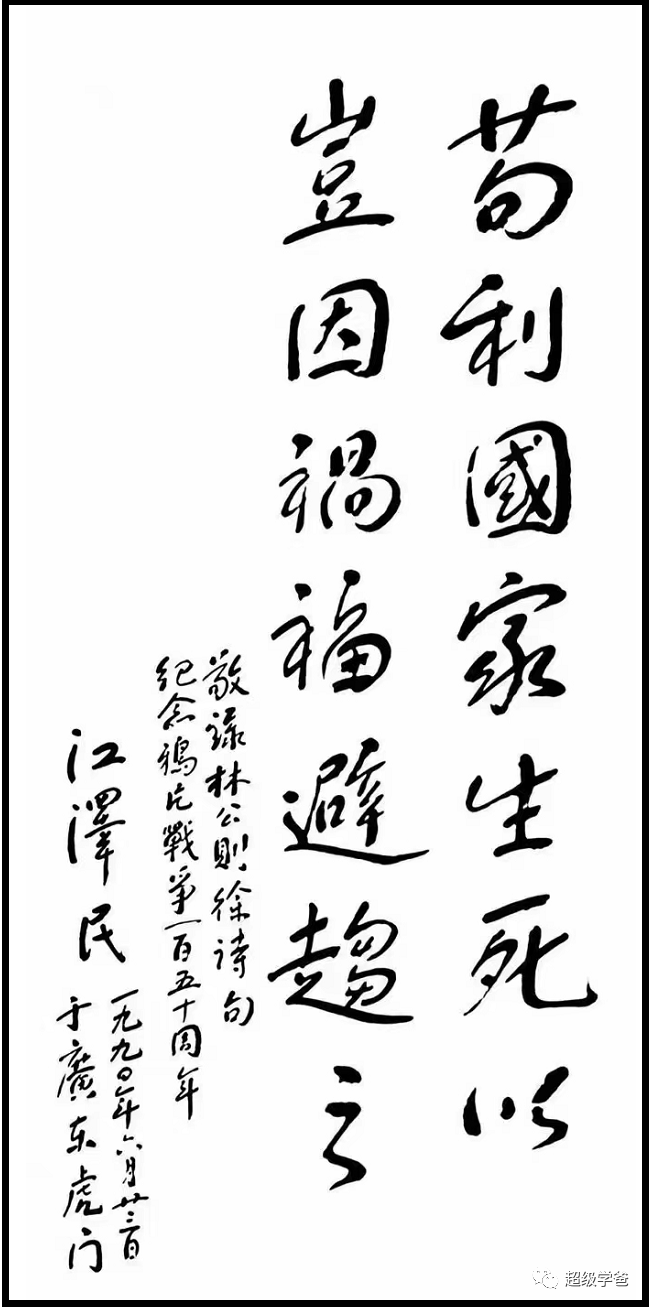 苟利國家生死以
豈因禍福避趨之
敬録林公則徐诗句
纪念鴉片戰爭一百五十周年
江澤民
一九九〇年六月廿三日
于廣东虎门
超级学爸